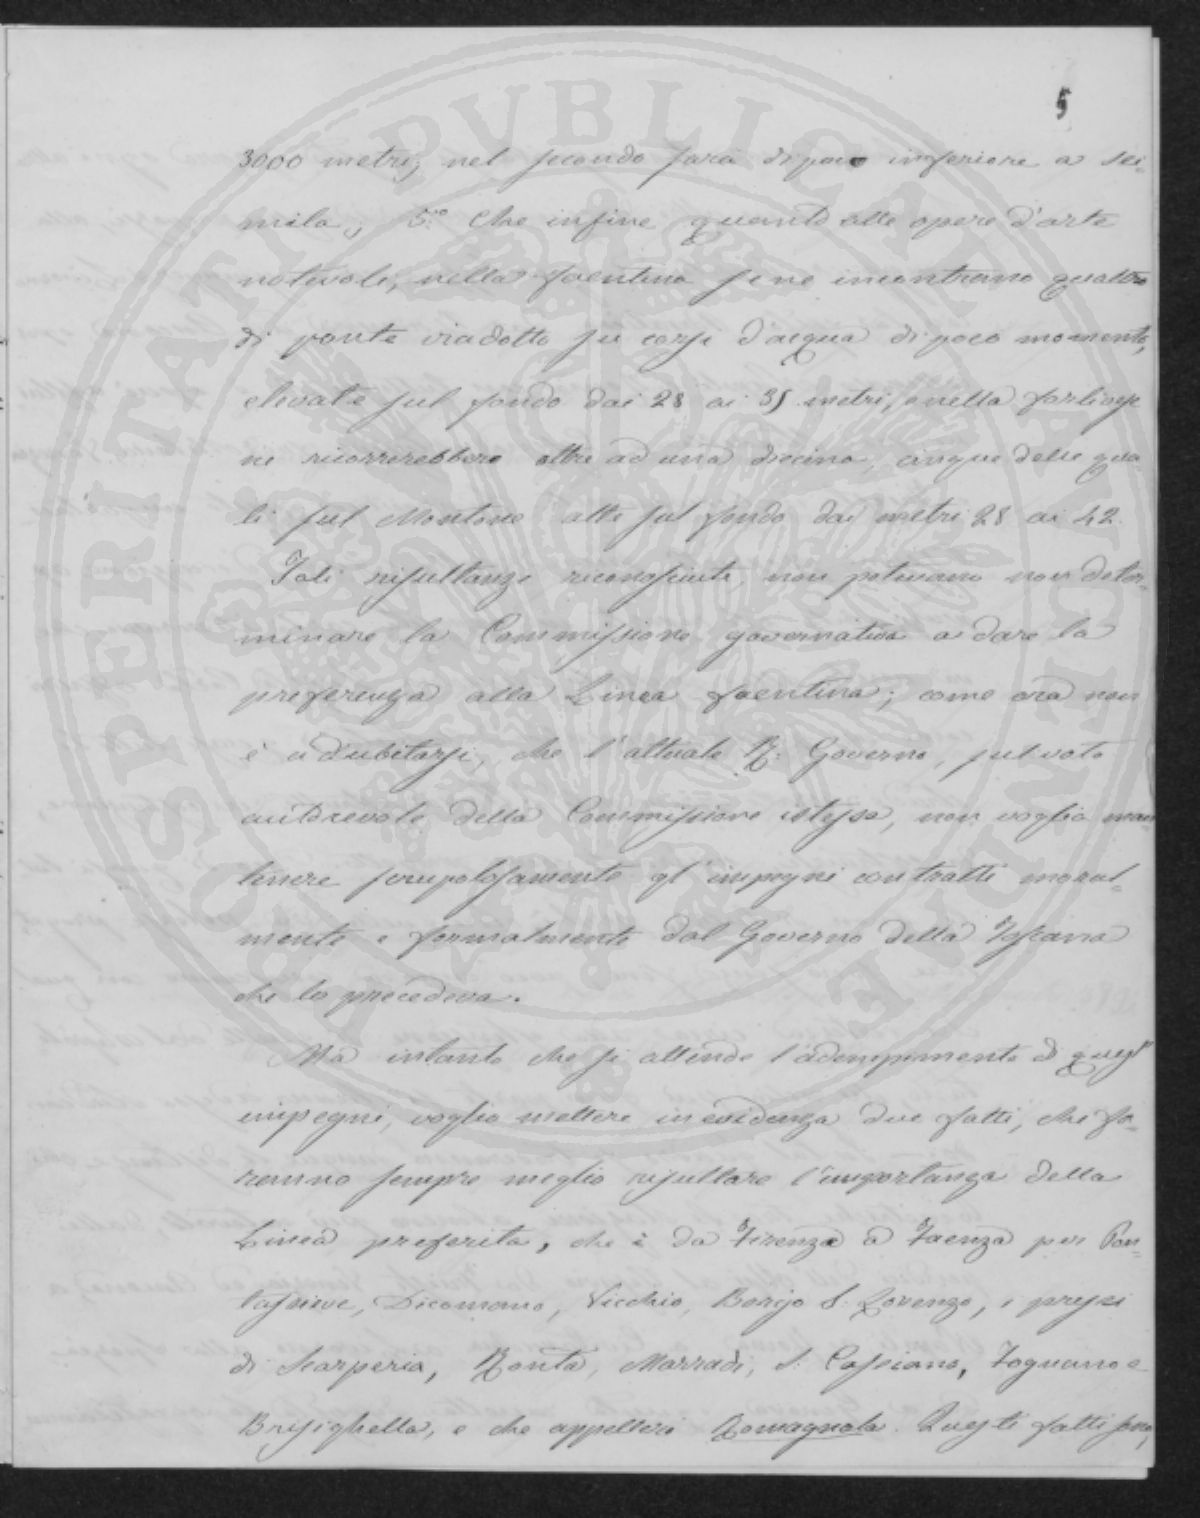 5
3000 metri; nel secondo sarà di poco inferiore a sei-
mila; 5.° Che infine quanto alle opere d'arte
notevoli, nella faentina se ne incontrano quattro
di ponte viadotto su corsi d'acqua di poco momento,
elevate sul fondo dai 28 ai 35 metri, e nella forlivese
ne ricorrerebbero oltre ad una diecina, cinque delle qua-
li sul Montone alte sul fondo dai metri 28 ai 42.
Tali risultanze riconosciute, non potevano non deter-
minare la Commissione governativa a dare la
preferenza alla Linea faentina; come ora non
è a dubitarsi, che l'attuale R. Governo, sul voto
autorevole della Commissione istessa, non voglia man
tenere scrupolosamente gl'impegni contratti moral-
mente e formalmente dal Governo della Toscana
che lo precedeva.
Ma intanto che si attende l'adempimento di quegl'
impegni, voglio mettere in evidenza due fatti, che fa-
ranno sempre meglio risultare l'importanza della
Linea preferita, che è da Firenze a Faenza per Pon-
tassieve, Dicomano, Vicchio, Borgo S. Lorenzo, e pressi
di Scarperia, Ronta, Marradi, S. Cassiano, Fognano e
Brisighella, e che appellerò Romagnola. Questi fatti sono,
PROSPERITATI PVBLICAE AVGENDAE